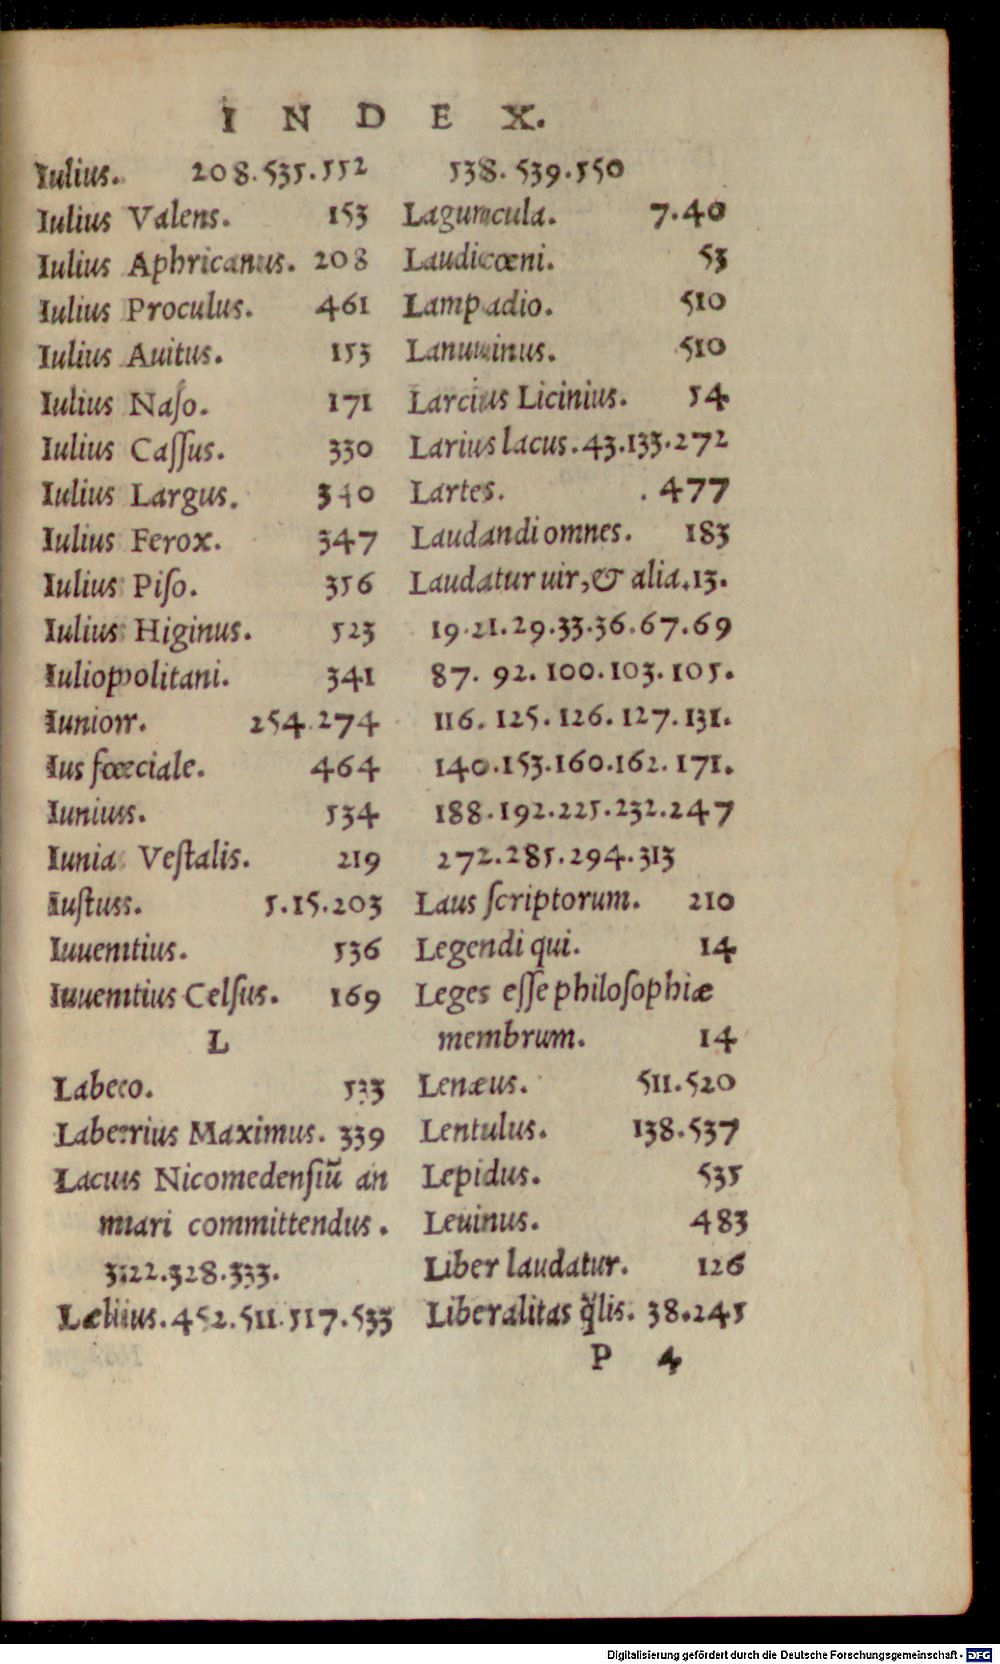 INDEX.
Iulius. 208.535.552
Iulius Valens. 153
Iulius Aphricanus. 208
Iulius Proculus. 461
Iulius Auitus. 153
Iulius Naſo. 171
Iulius Caſſus. 330
Iulius Largus. 340
Iulius Ferox. 347
Iulius Piſo. 356
Iulius Higinus. 523
Iuliopolitani. 341
Iunior. 254.274
Ius fœciale. 464
Iunius. 534
Iunia Veſtalis. 219
Iuſtus. 5.15.203
Iuuentius. 536
Iuuentius Celſus. 169
L
Labeo. 533
Laberius Maximus. 339
Lacus Nicomedenſiū an
mari committendus.
322.328.333.
Lælius. 452.511.517.533
538.539.550
Laguncula. 7.40
Laudicœni. 53
Lampadio. 510
Lanuuinus. 510
Larcius Licinius. 54
Larius lacus. 43.133.272
Lartes. 477
Laudandi omnes. 183
Laudatur uir, & alia. 13.
19.21.29.33.36.67.69
87. 92. 100. 103. 105.
116. 125. 126. 127. 131.
140.153.160.162. 171.
188.192.225.232.247
272.285.294.313
Laus ſcriptorum. 210
Legendi qui. 14
Leges eſſe philoſophiæ
membrum. 14
Lenæus. 511.520
Lentulus. 138.537
Lepidus. 535
Leuinus. 483
Liber laudatur. 126
Liberalitas q̃lis. 38.245
P 4
Digitalisierung gefördert durch die Deutsche Forschungsgemeinschaft - DFG